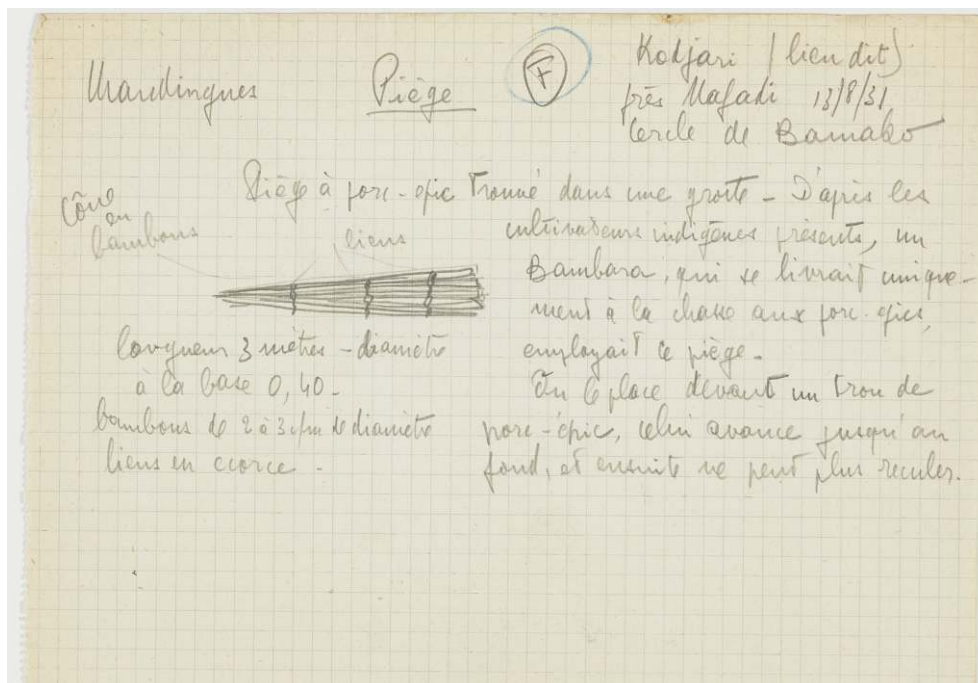 Mandingues
Piège
F
Kodjari (lieu dit)
près Mafadi 13/8/31
Cercle de Bamako
Piège à porc-epic trouvé dans une grotte - D'après les
cultivateurs indigènes présents, un
Bambara, qui se livrait unique-
ment à la chasse aux porc-epics,
employait ce piège.
On le place devant un trou de
porc-épic, celui avance jusqu'au
fond, et ensuite ne peut plus reculer.
Cône
en
bambous
liens
longueur 3 mètres - diamètre
à la base 0,40 -
bambous de 2 à 3 c/m de diamètre
liens en ecorce -